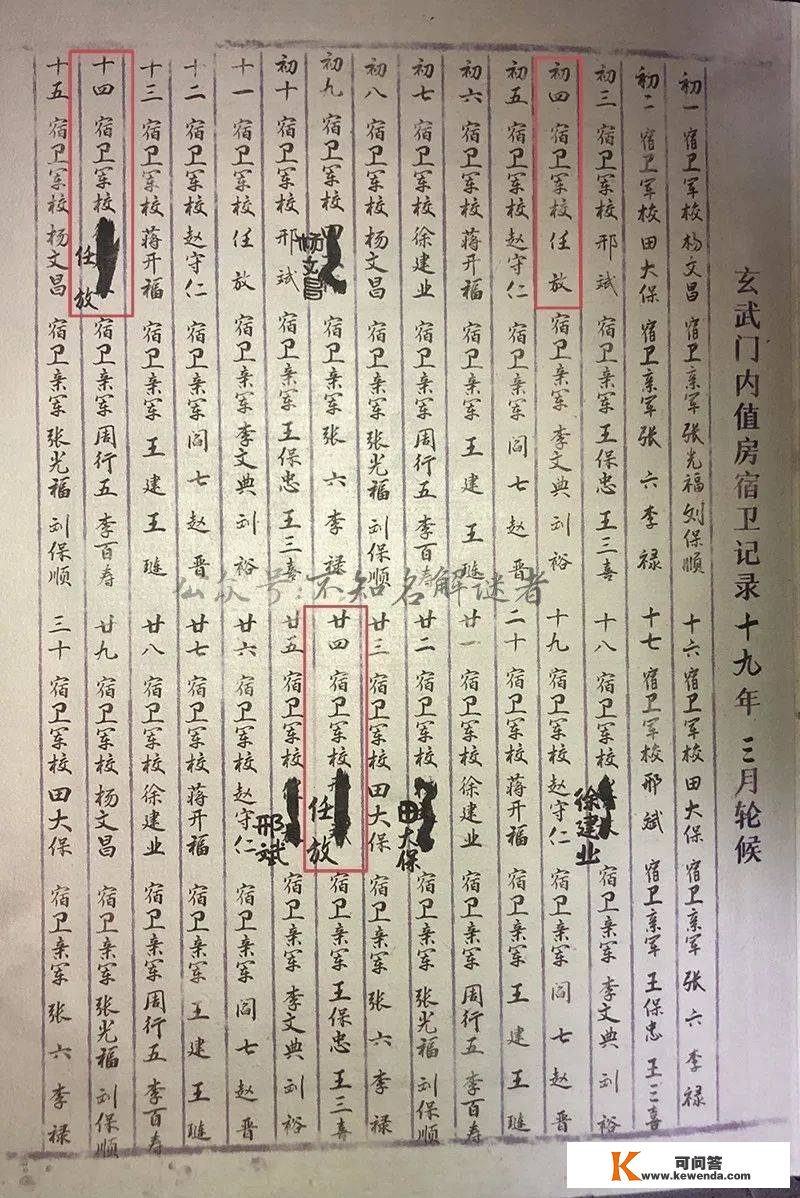 玄武门内值房宿卫记录 十九年 三月轮候
初一 宿卫军校 杨文昌 宿卫亲军 张光福 刘保顺
初二 宿卫军校 田大保 宿卫亲军 张六 李禄
初三 宿卫军校 邢斌 宿卫亲军 王保忠 王三喜
初四 宿卫军校 任放 宿卫亲军 李文典 刘裕
初五 宿卫军校 赵守仁 宿卫亲军 阎七 赵晋
初六 宿卫军校 蒋开福 宿卫亲军 王建 王琏
初七 宿卫军校 徐建业 宿卫亲军 周行五 李百寿
初八 宿卫军校 杨文昌 宿卫亲军 张光福 刘保顺
初九 宿卫军校 杨文昌 宿卫亲军 张六 李禄
初十 宿卫军校 邢斌 宿卫亲军 王保忠 王三喜
十一 宿卫军校 任放 宿卫亲军 李文典 刘裕
十二 宿卫军校 赵守仁 宿卫亲军 阎七 赵晋
十三 宿卫军校 蒋开福 宿卫亲军 王建 王琏
十四 宿卫军校 任放 宿卫亲军 周行五 李百寿
十五 宿卫军校 杨文昌 宿卫亲军 张光福 刘保顺
十六 宿卫军校 田大保 宿卫亲军 张六 李禄
十七 宿卫军校 邢斌 宿卫亲军 王保忠 王三喜
十八 宿卫军校 徐建业 宿卫亲军 李文典 刘裕
十九 宿卫军校 赵守仁 宿卫亲军 阎七 赵晋
二十 宿卫军校 蒋开福 宿卫亲军 王建 王琏
廿一 宿卫军校 徐建业 宿卫亲军 周行五 李百寿
廿二 宿卫军校 田大保 宿卫亲军 张光福 刘保顺
廿三 宿卫军校 田大保 宿卫亲军 张六 李禄
廿四 宿卫军校 任放 宿卫亲军 王保忠 王三喜
廿五 宿卫军校 邢斌 宿卫亲军 李文典 刘裕
廿六 宿卫军校 赵守仁 宿卫亲军 阎七 赵晋
廿七 宿卫军校 蒋开福 宿卫亲军 王建 王琏
廿八 宿卫军校 徐建业 宿卫亲军 周行五 李百寿
廿九 宿卫军校 杨文昌 宿卫亲军 张光福 刘保顺
三十 宿卫军校 田大保 宿卫亲军 张六 李禄
公众号:不知名解谜者
K 可问答
www.kewenda.com